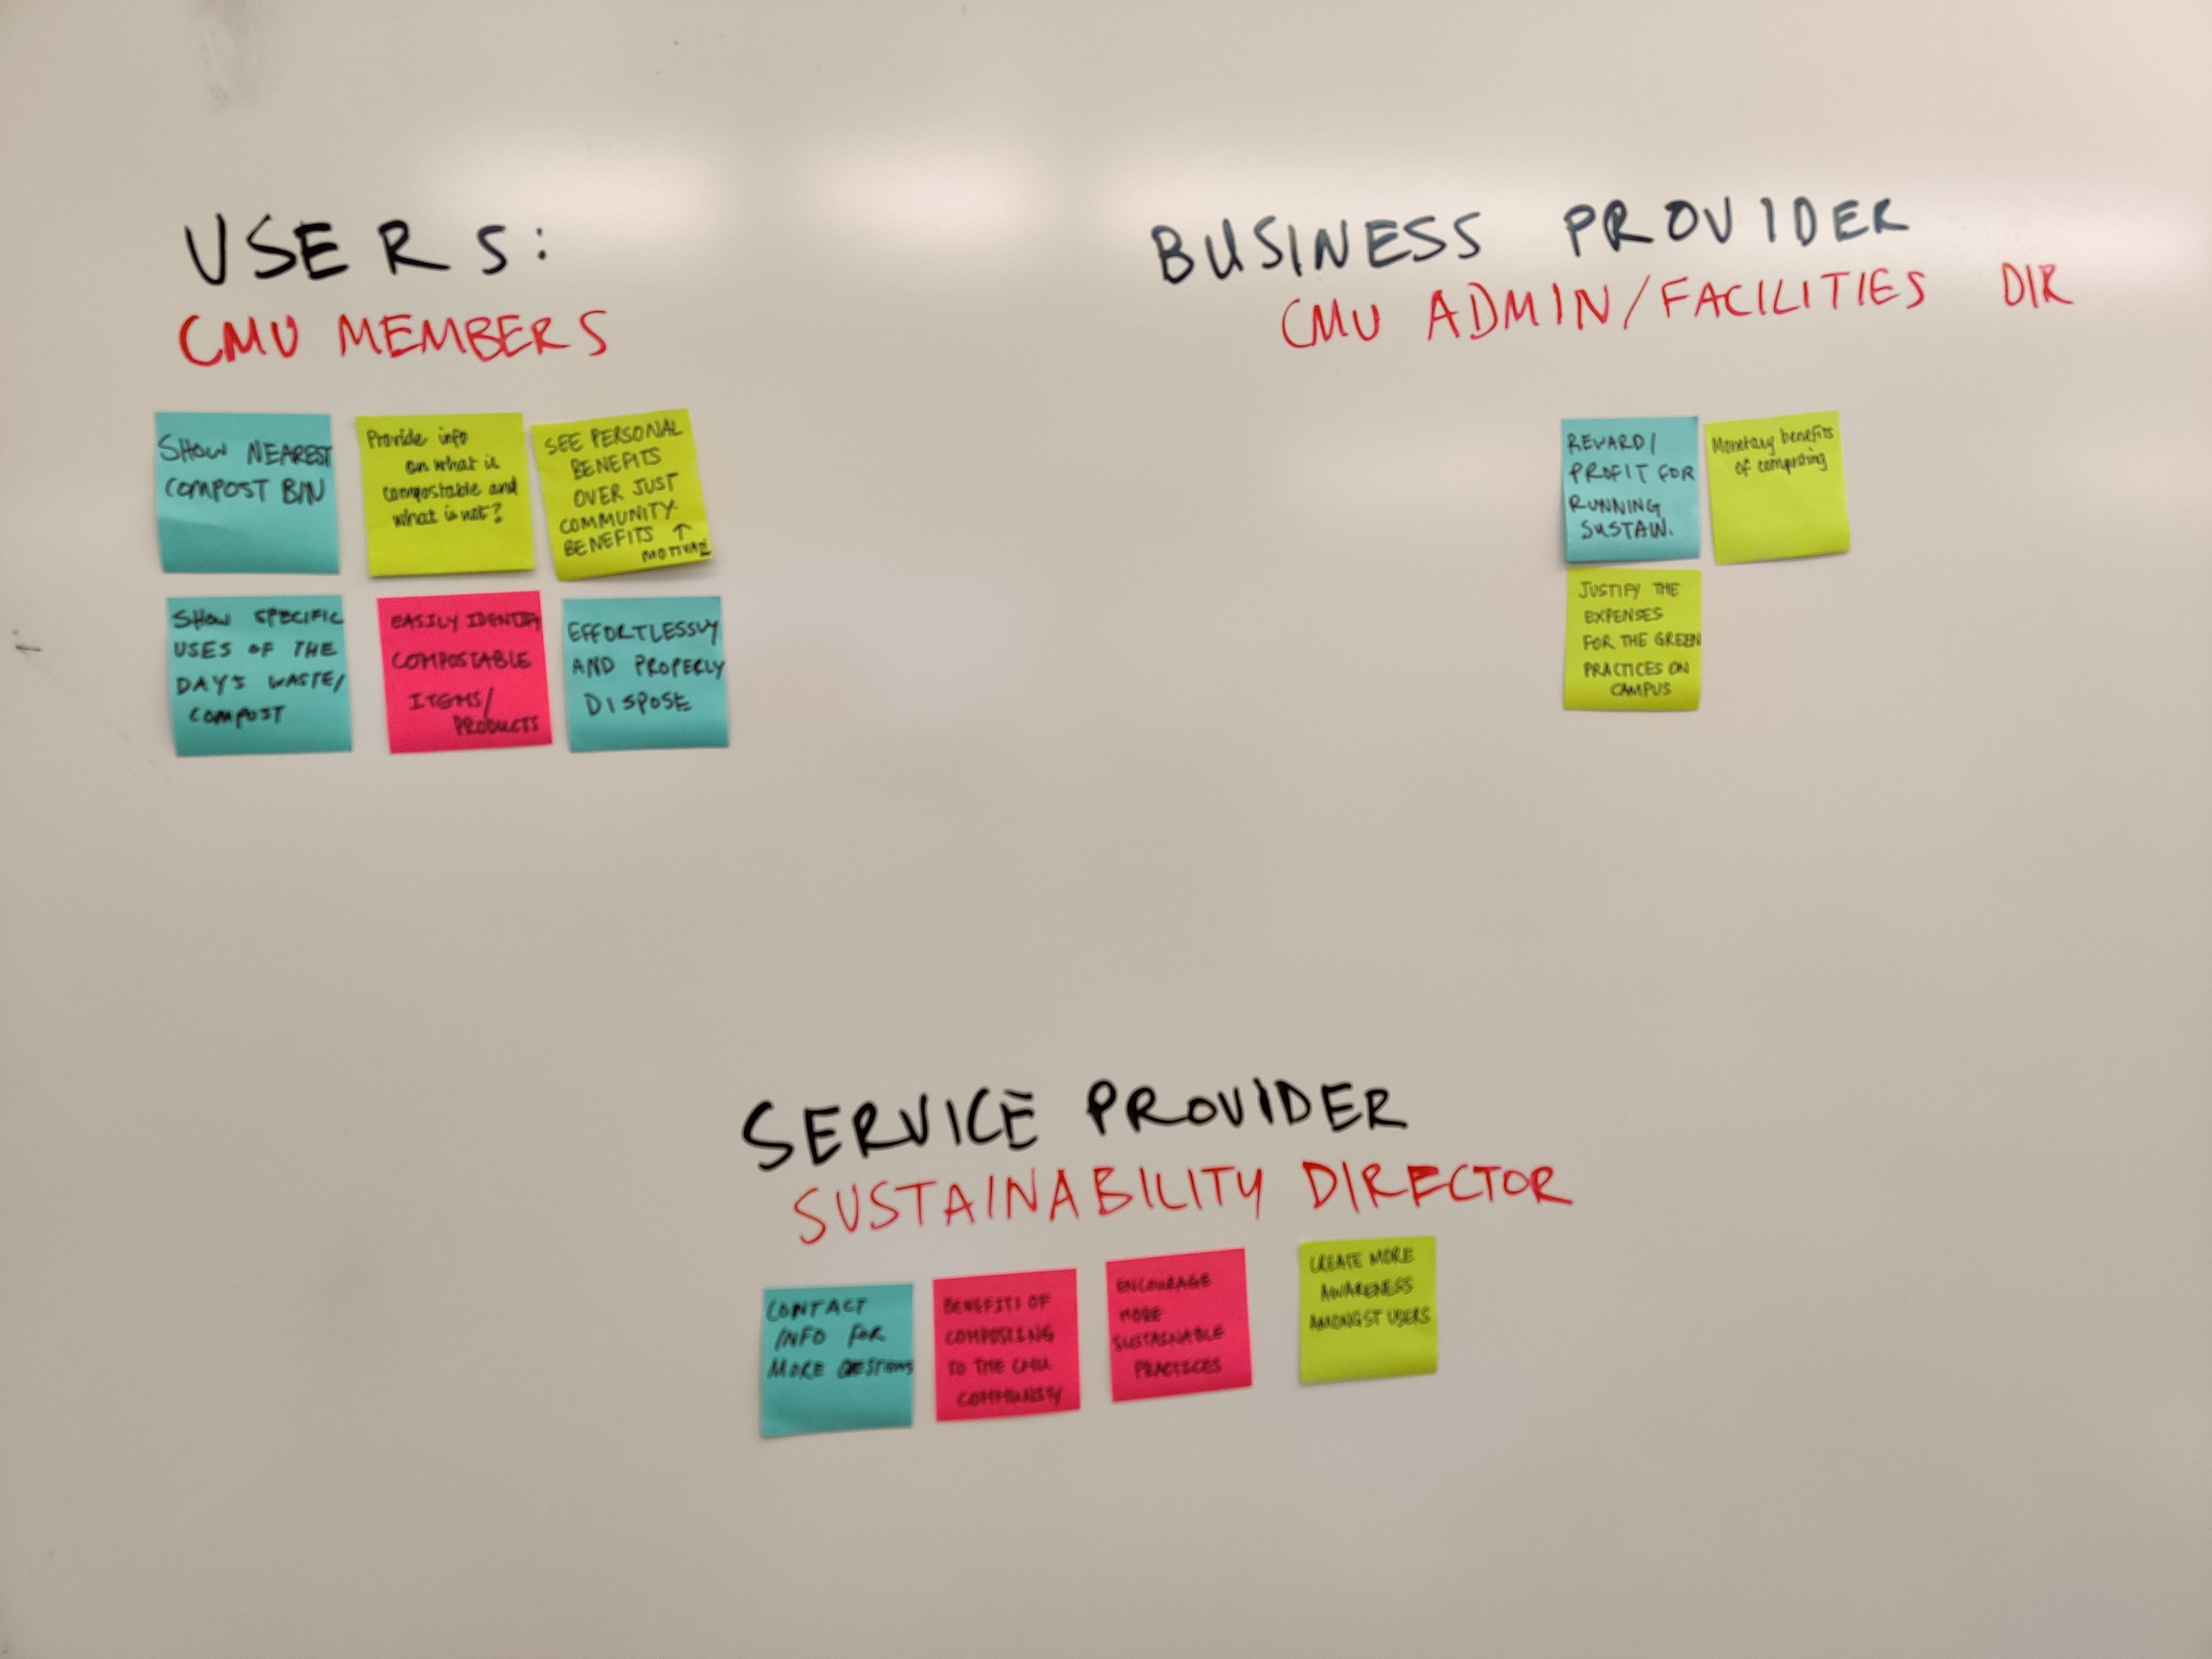 USERS:
CMU MEMBERS
SHOW NEAREST
COMPOST BIN
Provide info
on what is
compostable and
what is not?
SEE PERSONAL
BENEFITS
OVER JUST
COMMUNITY
BENEFITS ↑
SHOW SPECIFIC
USES OF THE
DAY'S WASTE/
COMPOST
EASILY IDENTIFY
COMPOSTABLE
ITEMS/
PRODUCTS
EFFORTLESSLY
AND PROPERLY
DISPOSE
BUSINESS PROVIDER
CMU ADMIN/FACILITIES DIR
REWARD/
PROFIT FOR
RUNNING
SUSTAIN.
Monetary benefits
of composting
JUSTIFY THE
EXPENSES
FOR THE GREEN
PRACTICES ON
CAMPUS
SERVICE PROVIDER
SUSTAINABILITY DIRECTOR
CONTACT
INFO FOR
MORE QESTIONS
BENEFITS OF
COMPOSTING
TO THE CMU
COMMUNITY
ENCOURAGE
MORE
SUSTAINABLE
PRACTICES
CREATE MORE
AWARENESS
AMONGST USERS